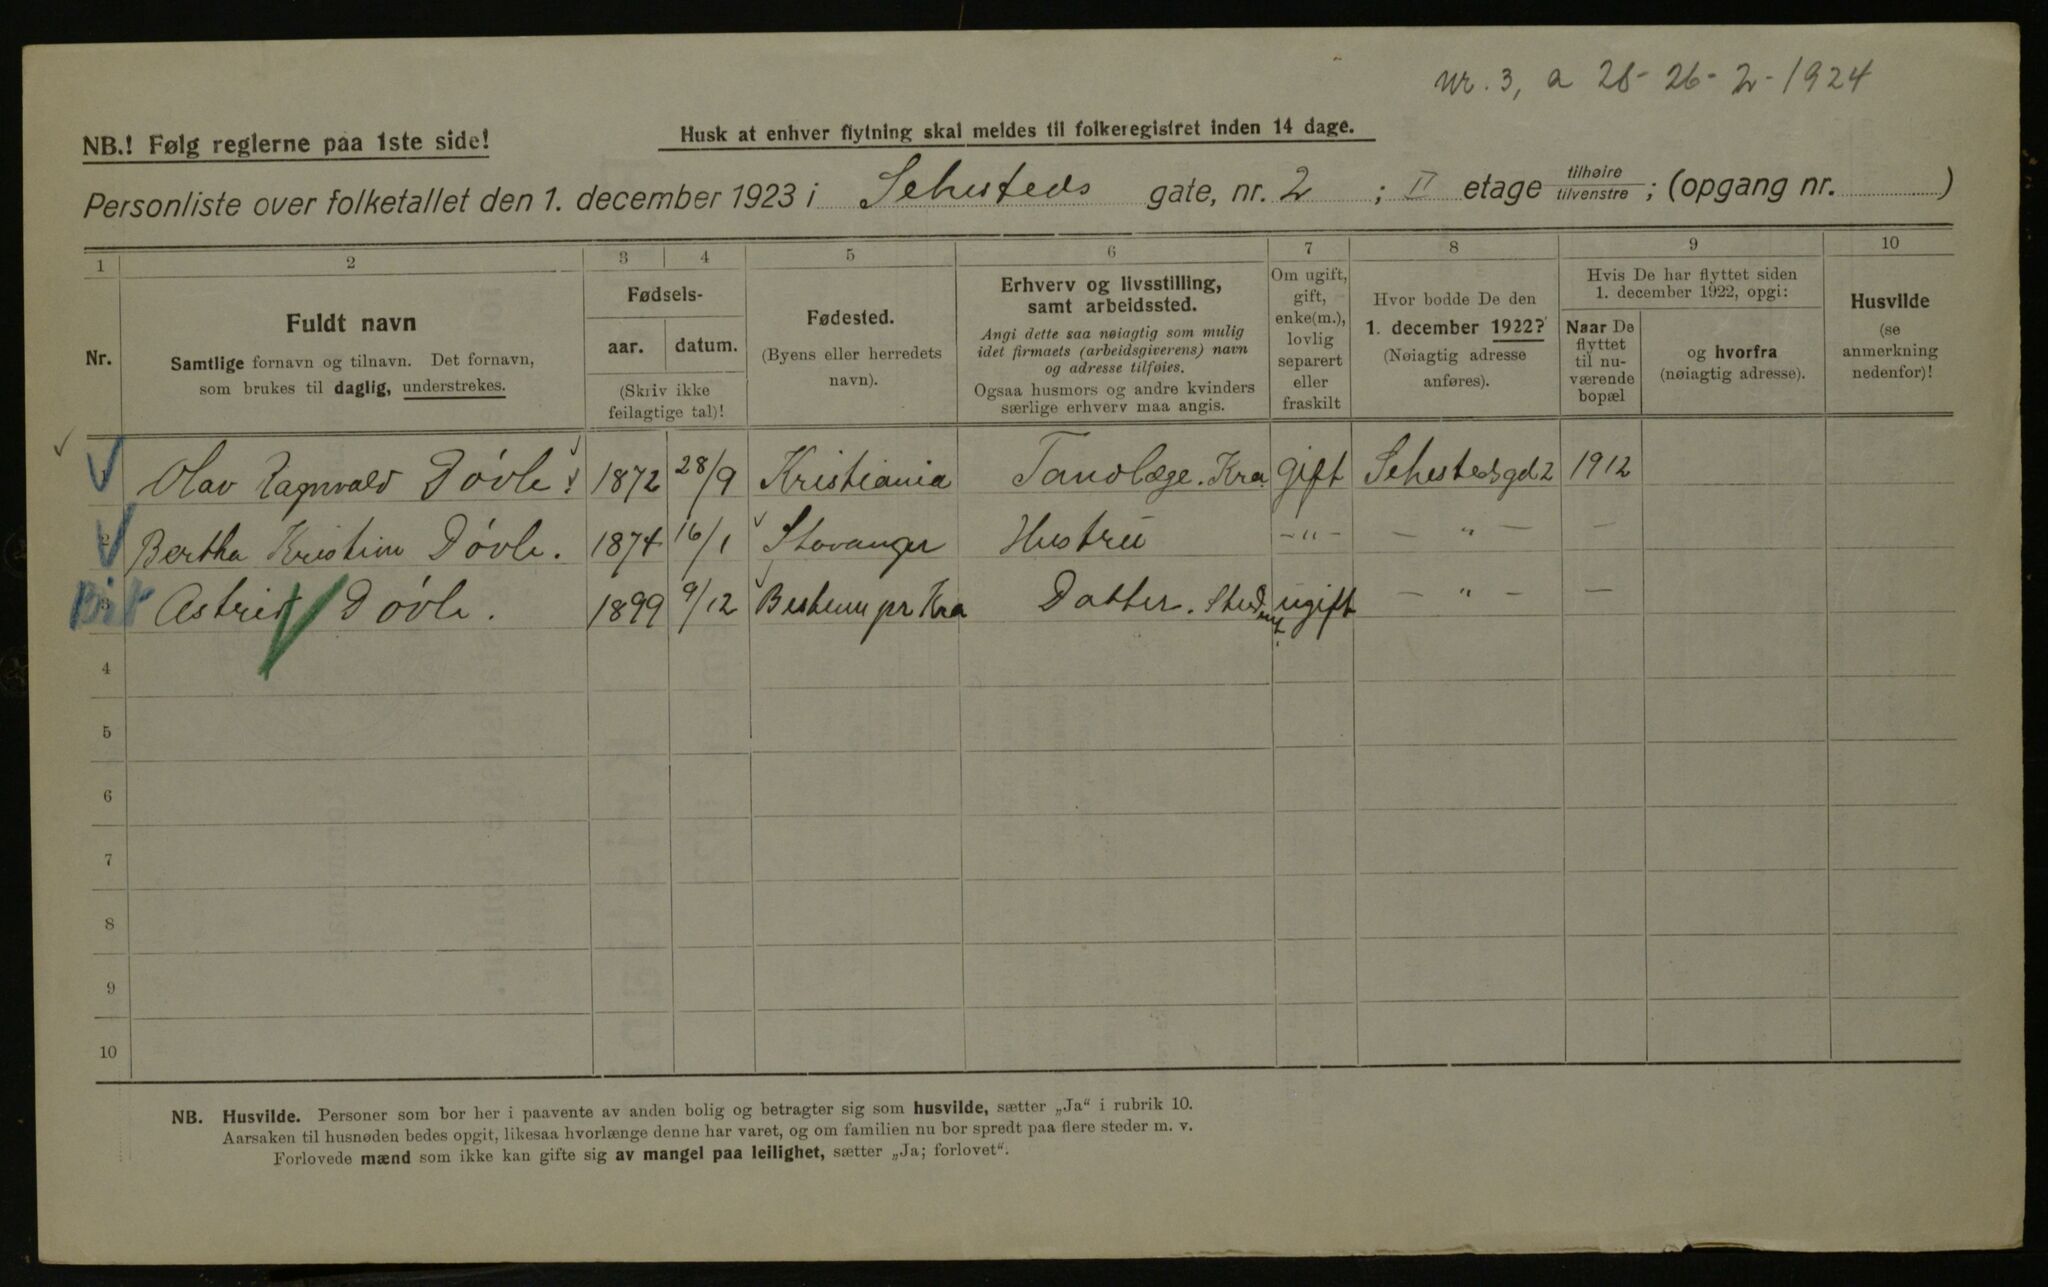 nr. 3, a 28- 26-2-1924
NB.! Følg reglerne paa 1ste side!
Husk at enhver flytning skal meldes til folkeregistret inden 14 dage.
Personliste over folketallet den 1. december 1923 i Sehesteds gate, nr. 2 ; II etage tilhøire/tilvenstre ; (opgang nr. )
1 2 3 4 5 6 7 8 9 10
Nr.
Fuldt navn
Samtlige fornavn og tilnavn. Det fornavn,
som brukes til daglig, understrekes.
Fødsels-
aar. datum.
(Skriv ikke
feilagtige tal)!
Fødested.
(Byens eller herredets
navn).
Erhverv og livsstilling,
samt arbeidssted.
Angi dette saa nøiagtig som mulig
idet firmaets (arbeidsgiverens) navn
og adresse tilføies.
Ogsaa husmors og andre kvinders
særlige erhverv maa angis.
Om ugift,
gift,
enke(m.),
lovlig
separert
eller
fraskilt
Hvor bodde De den
1. december 1922?
(Nøiagtig adresse
anføres).
Hvis De har flyttet siden
1. december 1922, opgi:
Naar De
flyttet
til nu-
værende
bopæl
og hvorfra
(nøiagtig adresse).
Husvilde
(se
anmerkning
nedenfor)!
Olav Ragnvald Dövle 1872 28/9 Kristiania Tandlæge. Kra gift Sehestedsgd 2 1912
2 Bertha Kristine Dövle. 1874 16/1 Stavanger Hustru -"- - " - -
3 Astrid Dövle. 1899 9/12 Bestum pr Kra Datter. Student. ugift - " - -
4
5
6
7
8
9
10
NB. Husvilde. Personer som bor her i paavente av anden bolig og betragter sig som husvilde, sætter „Ja“ i rubrik 10.
Aarsaken til husnøden bedes opgit, likesaa hvorlænge denne har varet, og om familien nu bor spredt paa flere steder m. v.
Forlovede mænd som ikke kan gifte sig av mangel paa leilighet, sætter „Ja; forlovet“.